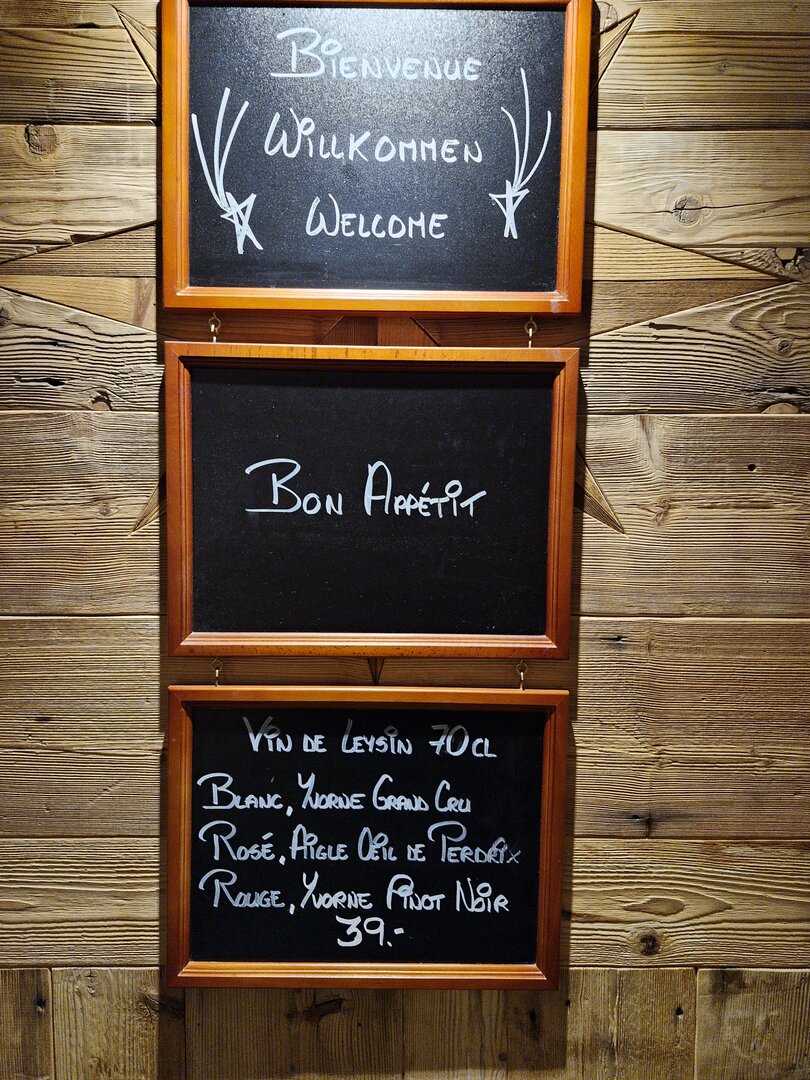 Bienvenue
Willkommen
Welcome
Bon Appétit
Vin de Leysin 70cl
Blanc, Yvorne Grand Cru
Rosé, Aigle Œil de Perdrix
Rouge, Yvorne Pinot Noir
39.-